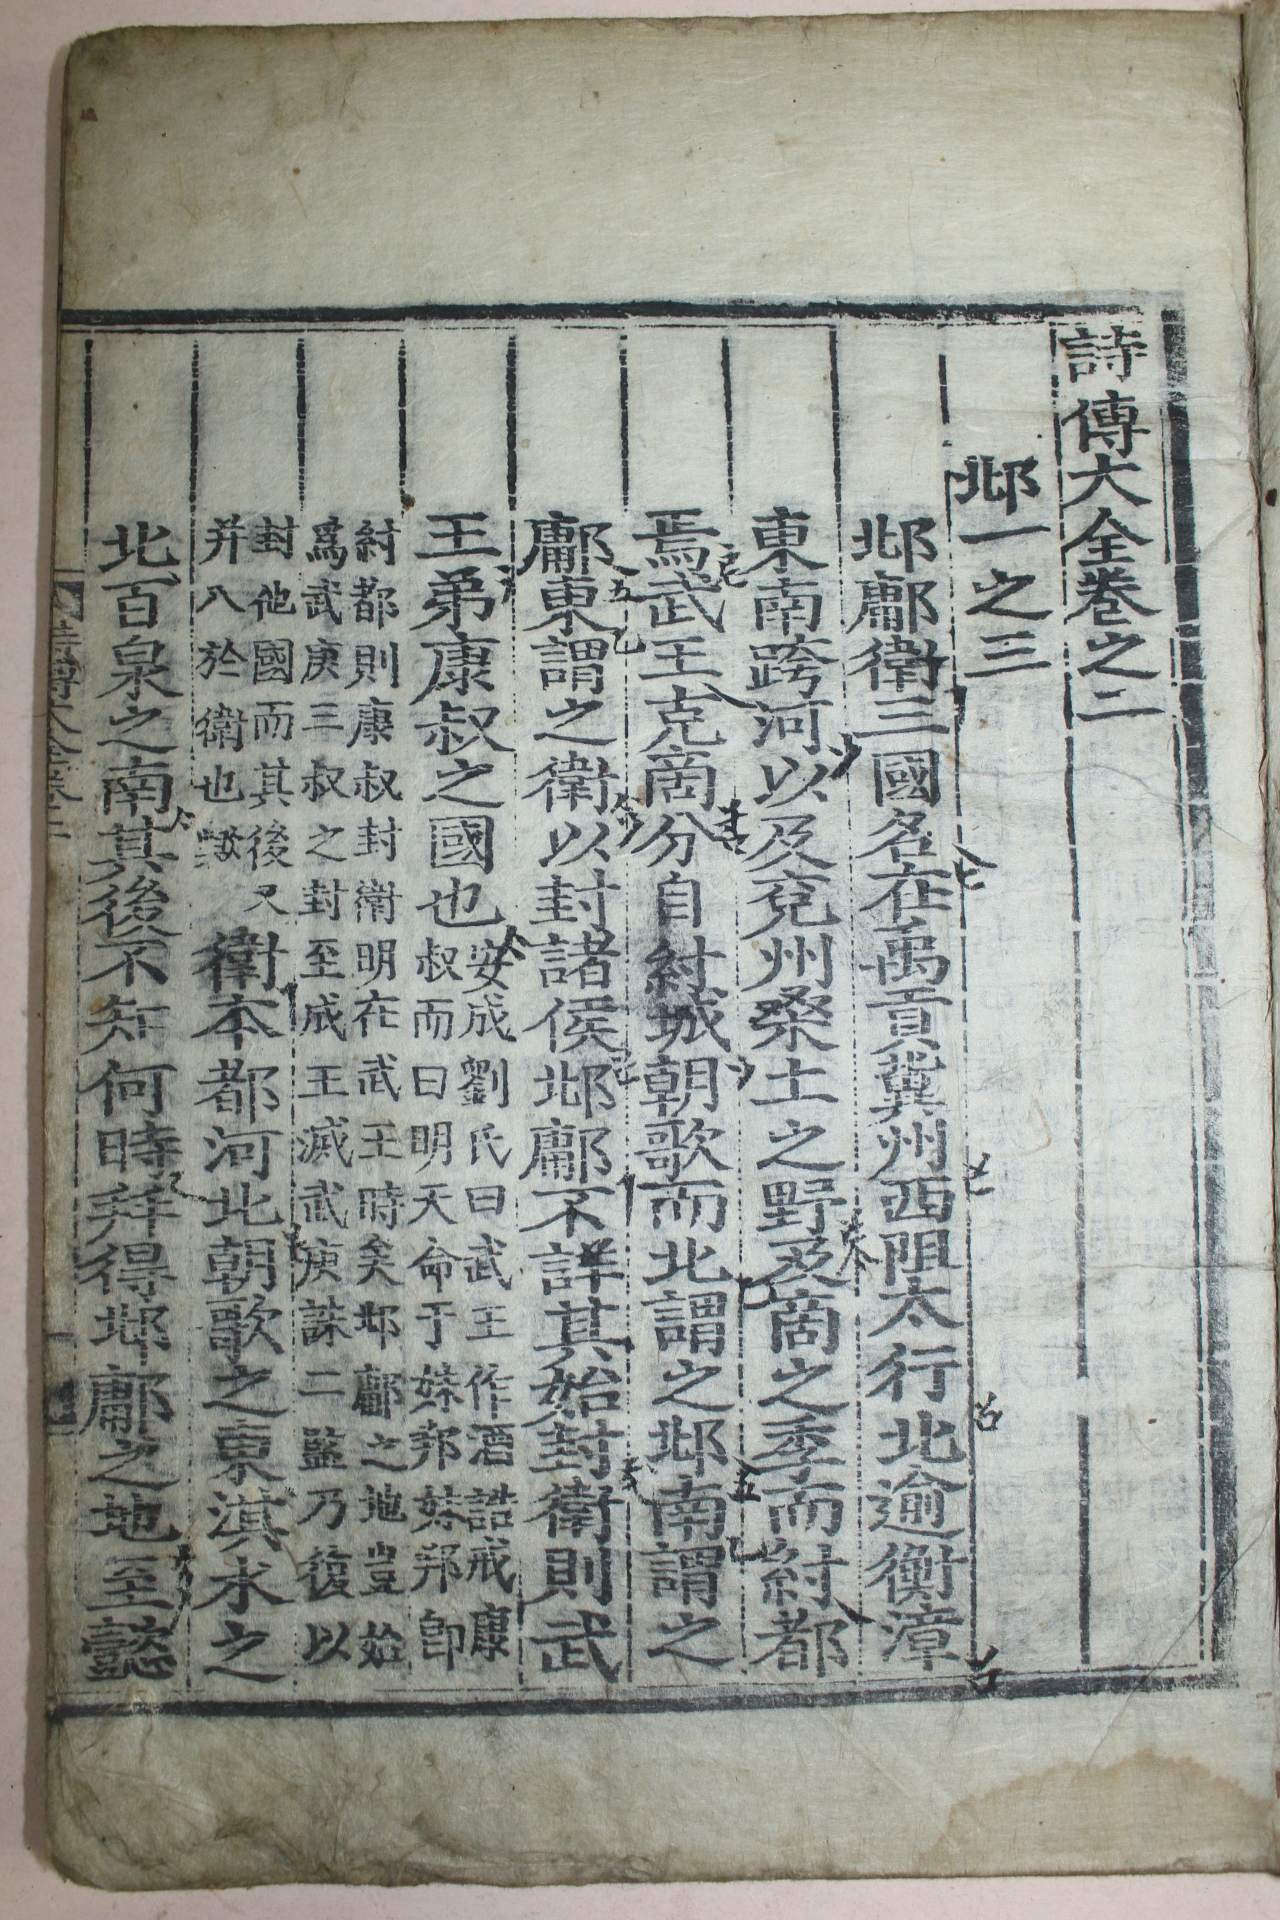 詩傳大全卷之二
邶一之三
邶鄘衛三國名在禹貢冀州西阻太行北逾衡漳
東南跨河以及兗州桑土之野及商之季而紂都
焉武王克商分自紂城朝歌而北謂之邶南謂之
鄘東謂之衛以封諸侯邶鄘不詳其始封衛則武
王弟康叔之國也
安成劉氏曰武王作酒誥戒康
叔而曰明大命于妹邦妹邦卽
紂都則康叔封衛明在武王時矣邶鄘之地豈始
爲武庚三叔之封至成王滅武庚誅二監乃復以
封他國而其後又
并入於衛也歟
衛本都河北朝歌之東淇水之
北百泉之南其後不知何時并得邶鄘之地至懿